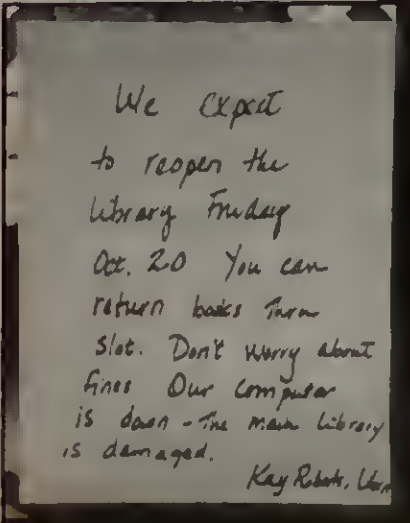 We expect
to reopen the
library Friday
Oct. 20 You can
return books Thru
slot. Don't worry about
fines Our computer
is down - The main library
is damaged.
Kay Roberts,